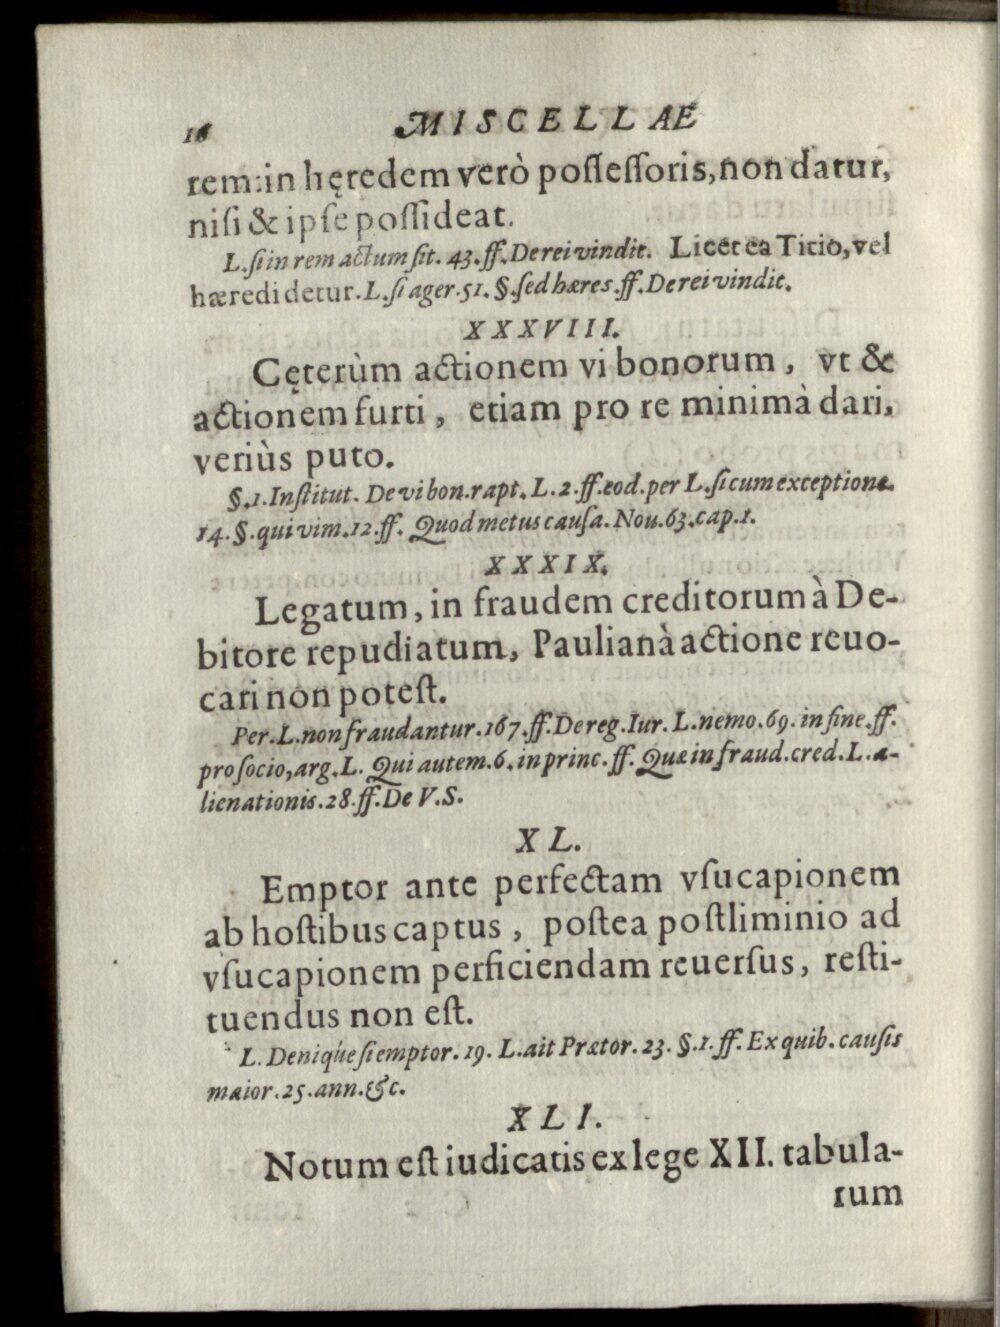 16 MISCELLAE
rem: in hęredem verò poſſeſſoris, non datur,
niſi & ipſe poſſideat.
L. ſi in rem actum ſit. 43. ff. De rei vindit. Licet ea Titio, vel
hæredi detur. L. ſi ager. 51. §. ſed hæres. ff. De rei vindic.
XXXVIII.
Cęterùm actionem vi bonorum, vt &
actionem furti, etiam pro re minimà dari,
veriùs puto.
§. 1. Inſtitut. De vi bon. rapt. L. 2. ff. eod. per L. ſi cum exceptione.
14. §. qui vim. 12. ff. Quod metus cauſa. Nou. 63. cap. 1.
XXXIX.
Legatum, in fraudem creditorum à De-
bitore repudiatum, Paulianà actione reuo-
cari non poteſt.
Per. L. non fraudantur. 167. ff. De reg. Iur. L. nemo. 69. in fine. ff.
pro ſocio, arg. L. Qui autem. 6. in princ. ff. Quæ in fraud. cred. L. a-
lienationis. 28. ff. De V. S.
XL.
Emptor ante perfectam vſucapionem
ab hoſtibus captus, poſtea poſtliminio ad
vſucapionem perficiendam reuerſus, reſti-
tuendus non eſt.
L. Denique ſi emptor. 19. L. ait Prætor. 23. §. 1. ff. Ex quib. cauſis
maior. 25. ann. &c.
XLI.
Notum eſt iudicatis ex lege XII. tabula-
rum